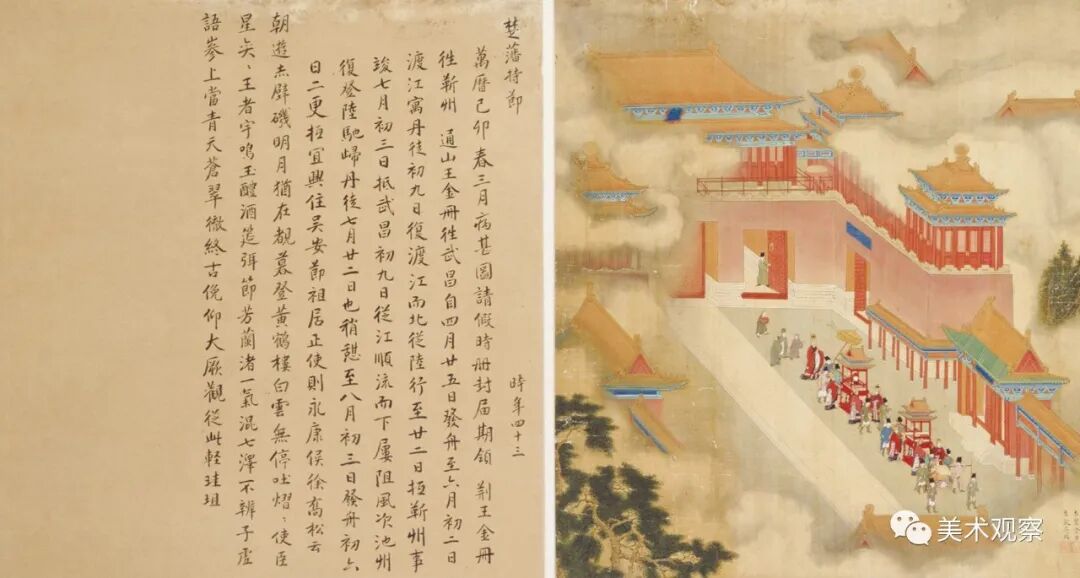 楚藩持節
時年四十三
萬曆己卯春三月病甚圖請假時册封届期領 荆王金冊
徃蘄州 通山王金冊徃武昌自四月廿五日發舟至六月初二日
渡江寓丹徒初九日復渡江而北從陸行至廿二日抵蘄州事
竣七月初三日抵武昌初九日從江順流而下屢阻風次池州
復登陸馳歸丹徒七月廿二日也稍憩至八月初三日發舟初六
日二更抵宜興住吳安節祖居正使則永康侯徐喬松云
朝遊赤壁磯明月猶在覩暮登黃鶴樓白雲無停吐熠〻使臣
星矣〻王者宇鳴玉醴酒筵弭節芳蘭渚一氣混七澤不辨子虛
語嵾上當青天蒼翠徹終古俛仰大厥觀從此輕珪俎
美术观察